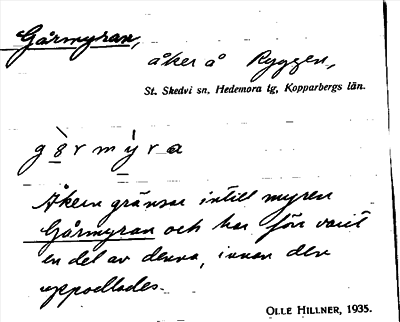 Gårmyran,
åker å Ryggen,
St. Skedvi sn, Hedemora tg, Kopparbergs län.
g å̀ r m ý r a
Åkern gränsar intill myren
Gårmyran och har förr varit
en del av denna, innan den
uppodlades.
OLLE HILLNER, 1935.